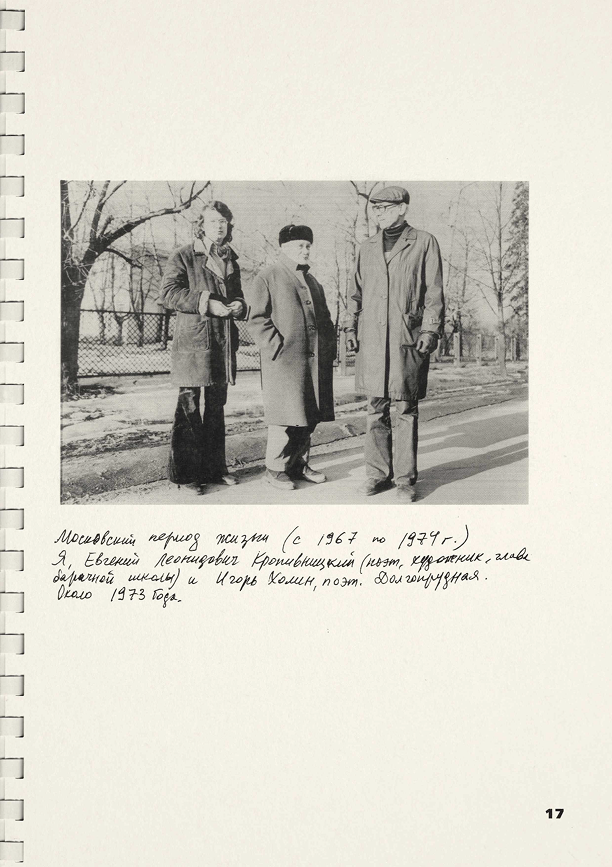 Московский период жизни (с 1967 по 1974 г.)
Я, Евгений Леонидович Кропивницкий (поэт, художник, глава
барачной школы) и Игорь Холин, поэт. Долгопрудная.
Около 1973 года.
17